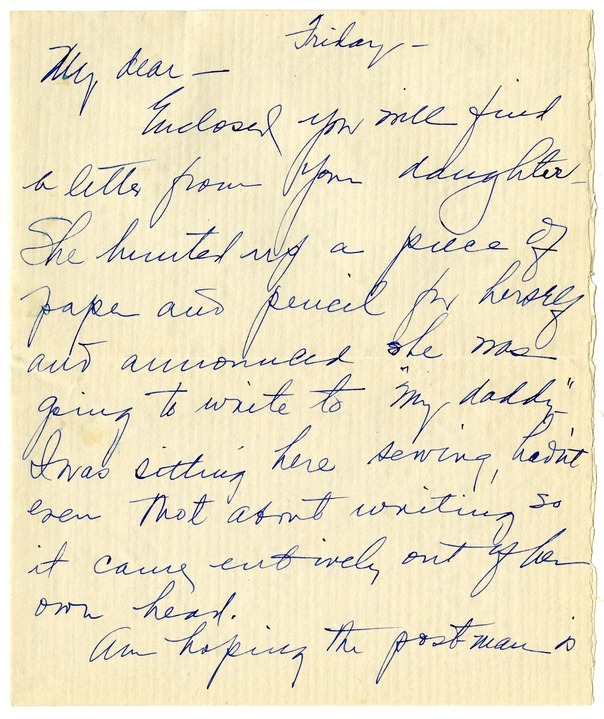 Friday –
My dear –
Enclosed you will find
a letter from your daughter –
She hunted up a piece of
paper and pencil for herself
and announced she was
going to write to "my daddy"
I was sitting here sewing, hadn't
even thot about writing so
it came entirely out of her
own head.
Am hoping the postman is